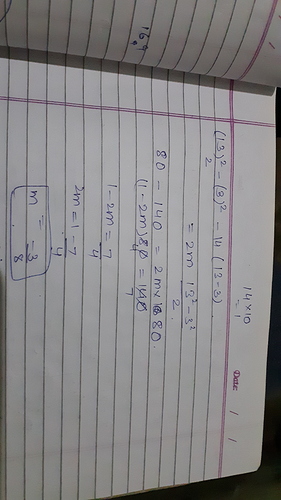 169
9
Date / /
14×10
= 1
(13)² - (3)² - 14 (13-3)
2
= 2m 13² - 3²
2
80 - 140 = 2m × 80
(1 - 2m) 80 = 140
7
1 - 2m = 7
4
2m = 1 - 7
4
m = -3
8